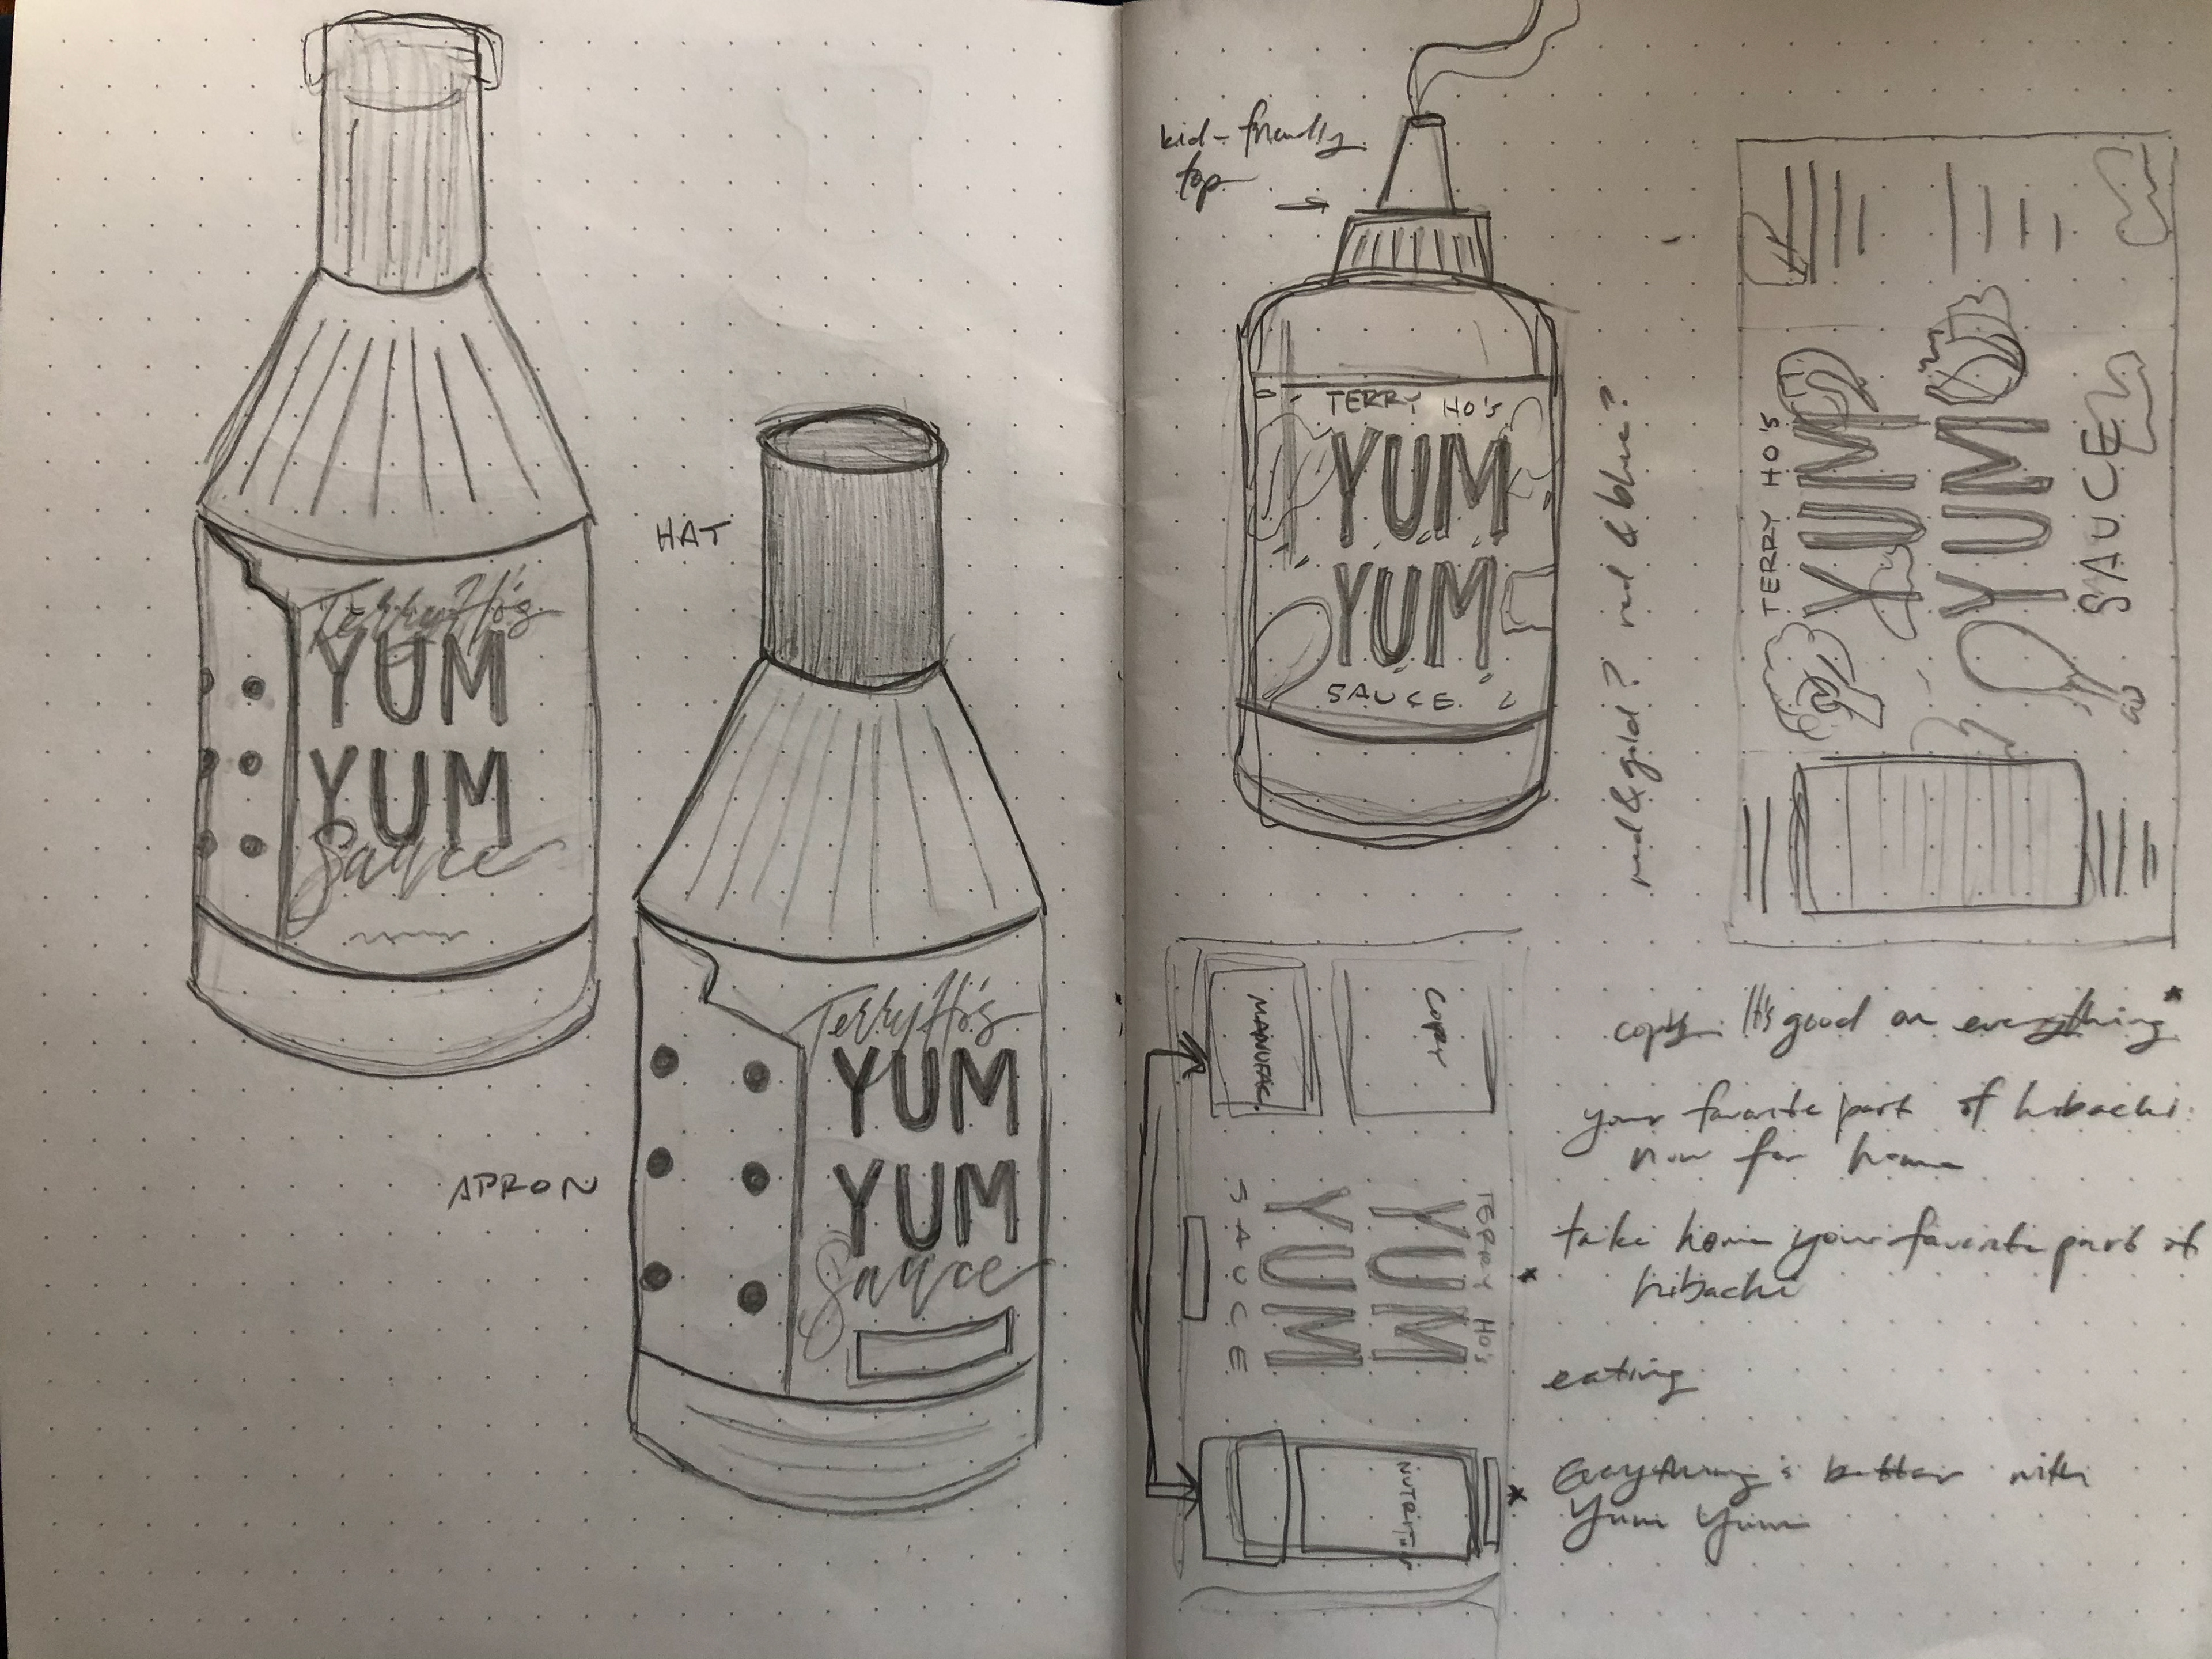 Terry Ho's
YUM
YUM
Sauce
HAT
APRON
Terry Ho's
YUM
YUM
Sauce
kid-friendly
top
TERRY HO's
YUM
YUM
SAUCE
red & gold? red & blue?
TERRY HO'S
YUM
YUM
SAUCE
MANUFAC.
COPY
TERRY HO's
YUM
YUM
SAUCE
NUTRITION
copy: It's good on everything*
your favorite part of hibachi:
now for home
take home your favorite part of
hibachi
eating
* Everything's better with
Yum Yum